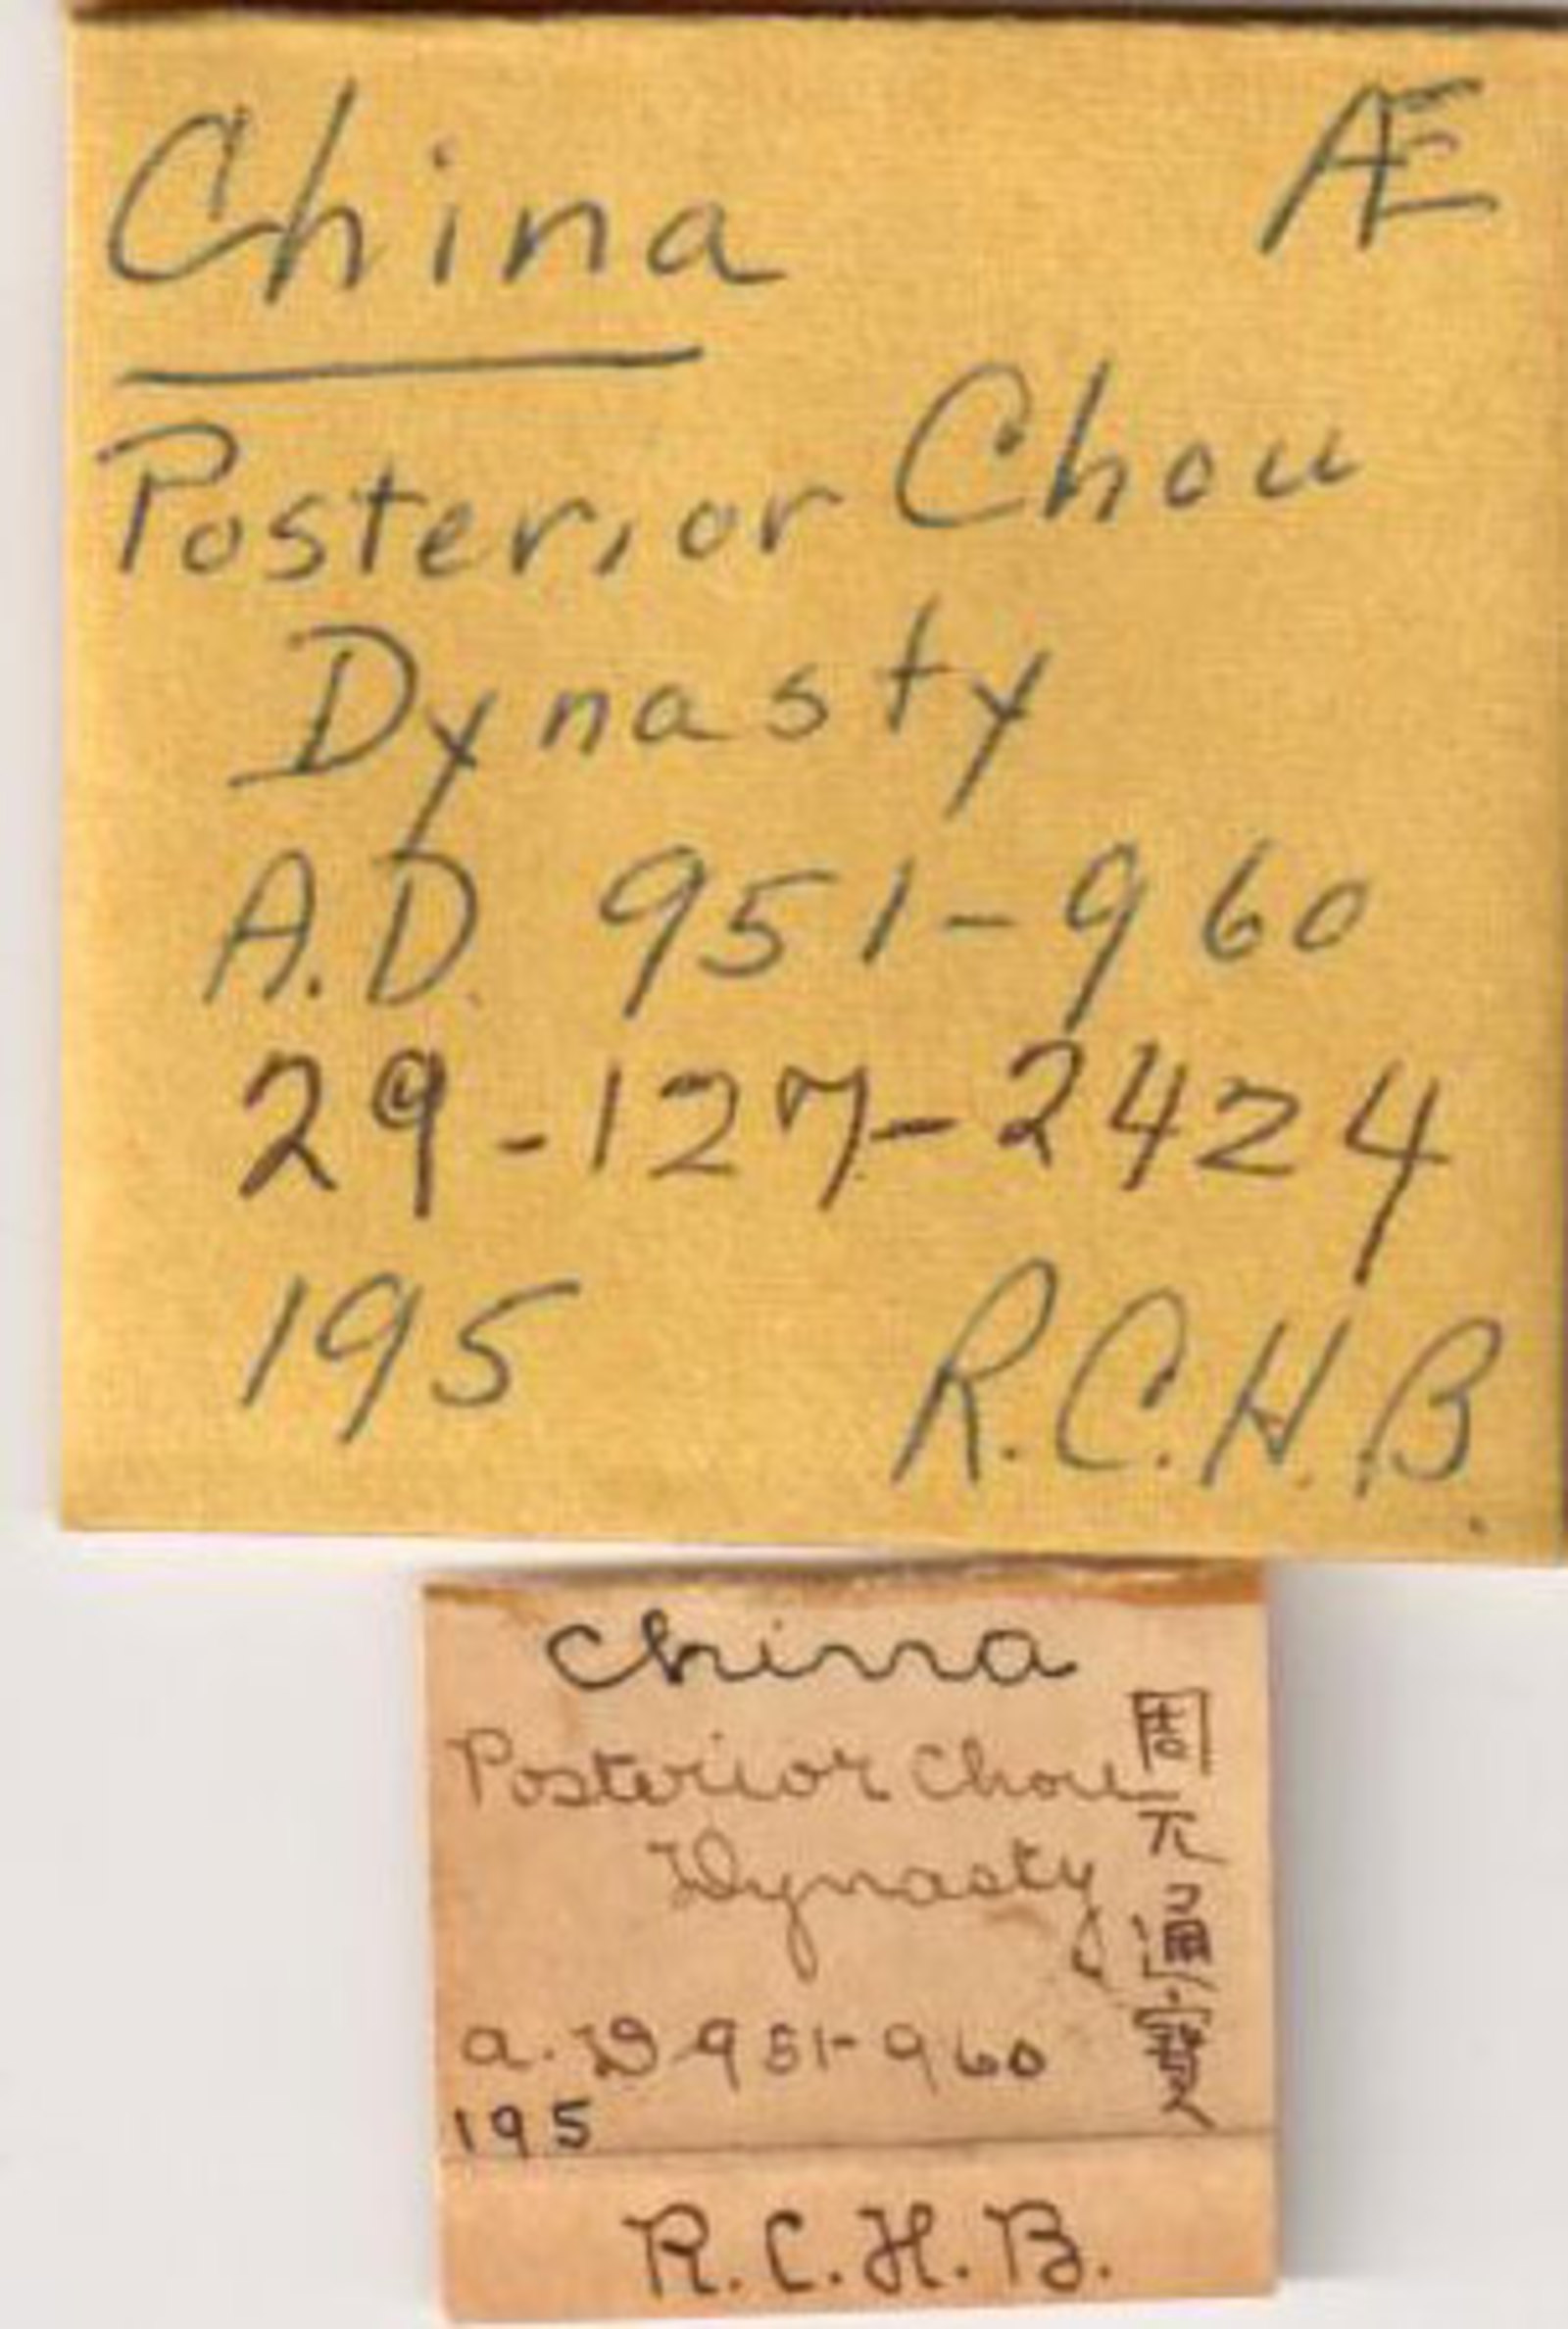 China
Æ
Posterior Chou
Dynasty
A.D. 951-960
29-127-2424
195
R.C.H.B.
China
Posterior Chou
Dynasty
a.D 951-960
195
周元通寶
R.C.H.B.